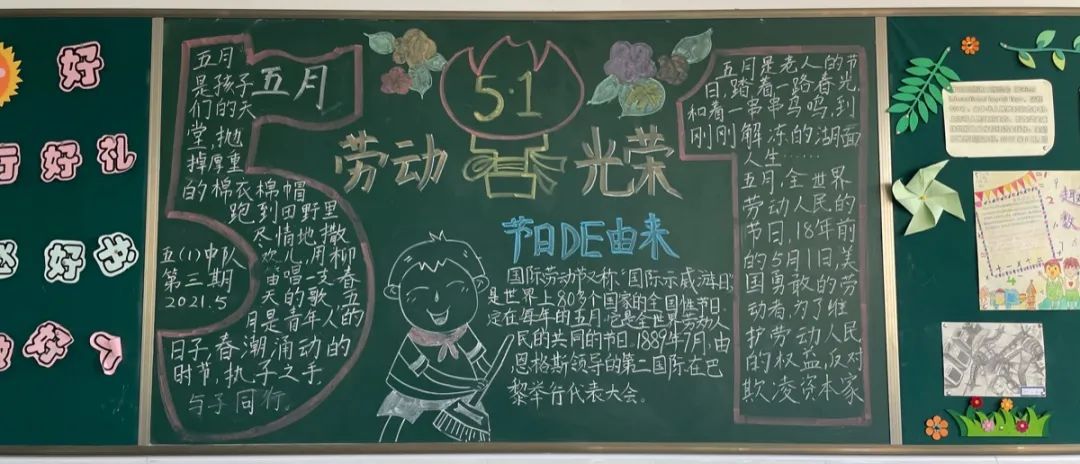 好
行好礼
好书
好人
五月
五月
是孩子
们的天
堂,抛
掉厚重
的棉衣棉帽
跑到田野里
尽情地撒
欢儿,用柳
笛唱一支春
天的歌。五
月是青年人的
日子,春潮涌动的
时节,执子之手,
与子同行。
五(1)中队
第三期
2021.5
5·1
劳动
光荣
节日DE由来
国际劳动节又称“国际示威游日”
是世界上80多个国家的全国性节日.
定在每年的五月.它是全世界劳动人
民的共同的节日.1889年7月,由
恩格斯领导的第二国际在巴
黎举行代表大会。
五月是老人的节
日,踏着一路春光,
和着一串串鸟鸣,到
刚刚解冻的湖面
人生……
五月,全世界
劳动人民的
节日,18年前
的5月1日,美
国勇敢的劳
动者,为了维
护劳动人民
的权益,反对
欺凌资本家